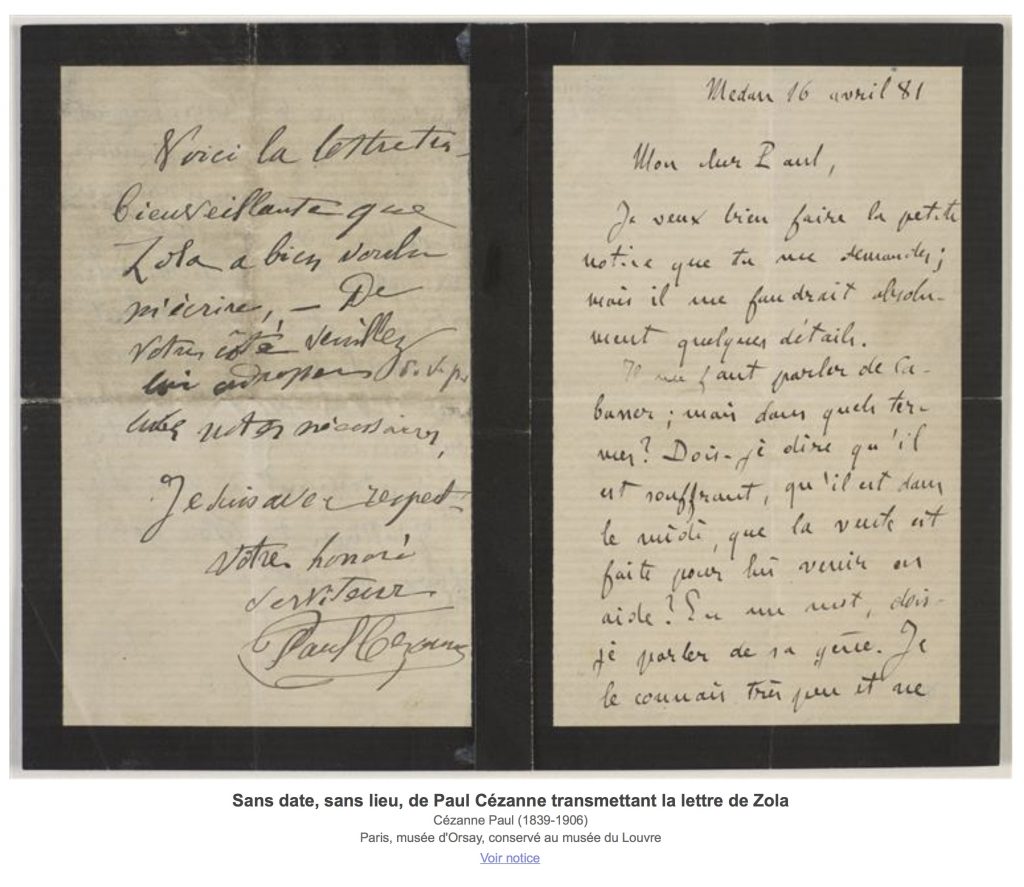 Voici la lettre très
bienveillante que
Zola a bien voulu
m'écrire, — De
votre côté veuillez
lui adresser
notes nécessaires,
Je suis avec respect
votre honoré
serviteur
Paul Cezanne
Medan 16 avril 81
Mon cher Paul,
Je veux bien faire la petite
notice que tu me demandes;
mais il me faudrait absolu-
ment quelques détails.
Il me faut parler de Ca-
baner; mais dans quels ter-
mes? Dois-je dire qu'il
est souffrant, qu'il est dans
le midi, que la vente est
faite pour lui venir en
aide? En un mot, dois-
je parler de sa gêne. Je
le connais très peu et ne
Sans date, sans lieu, de Paul Cézanne transmettant la lettre de Zola
Cézanne Paul (1839-1906)
Paris, musée d'Orsay, conservé au musée du Louvre
Voir notice